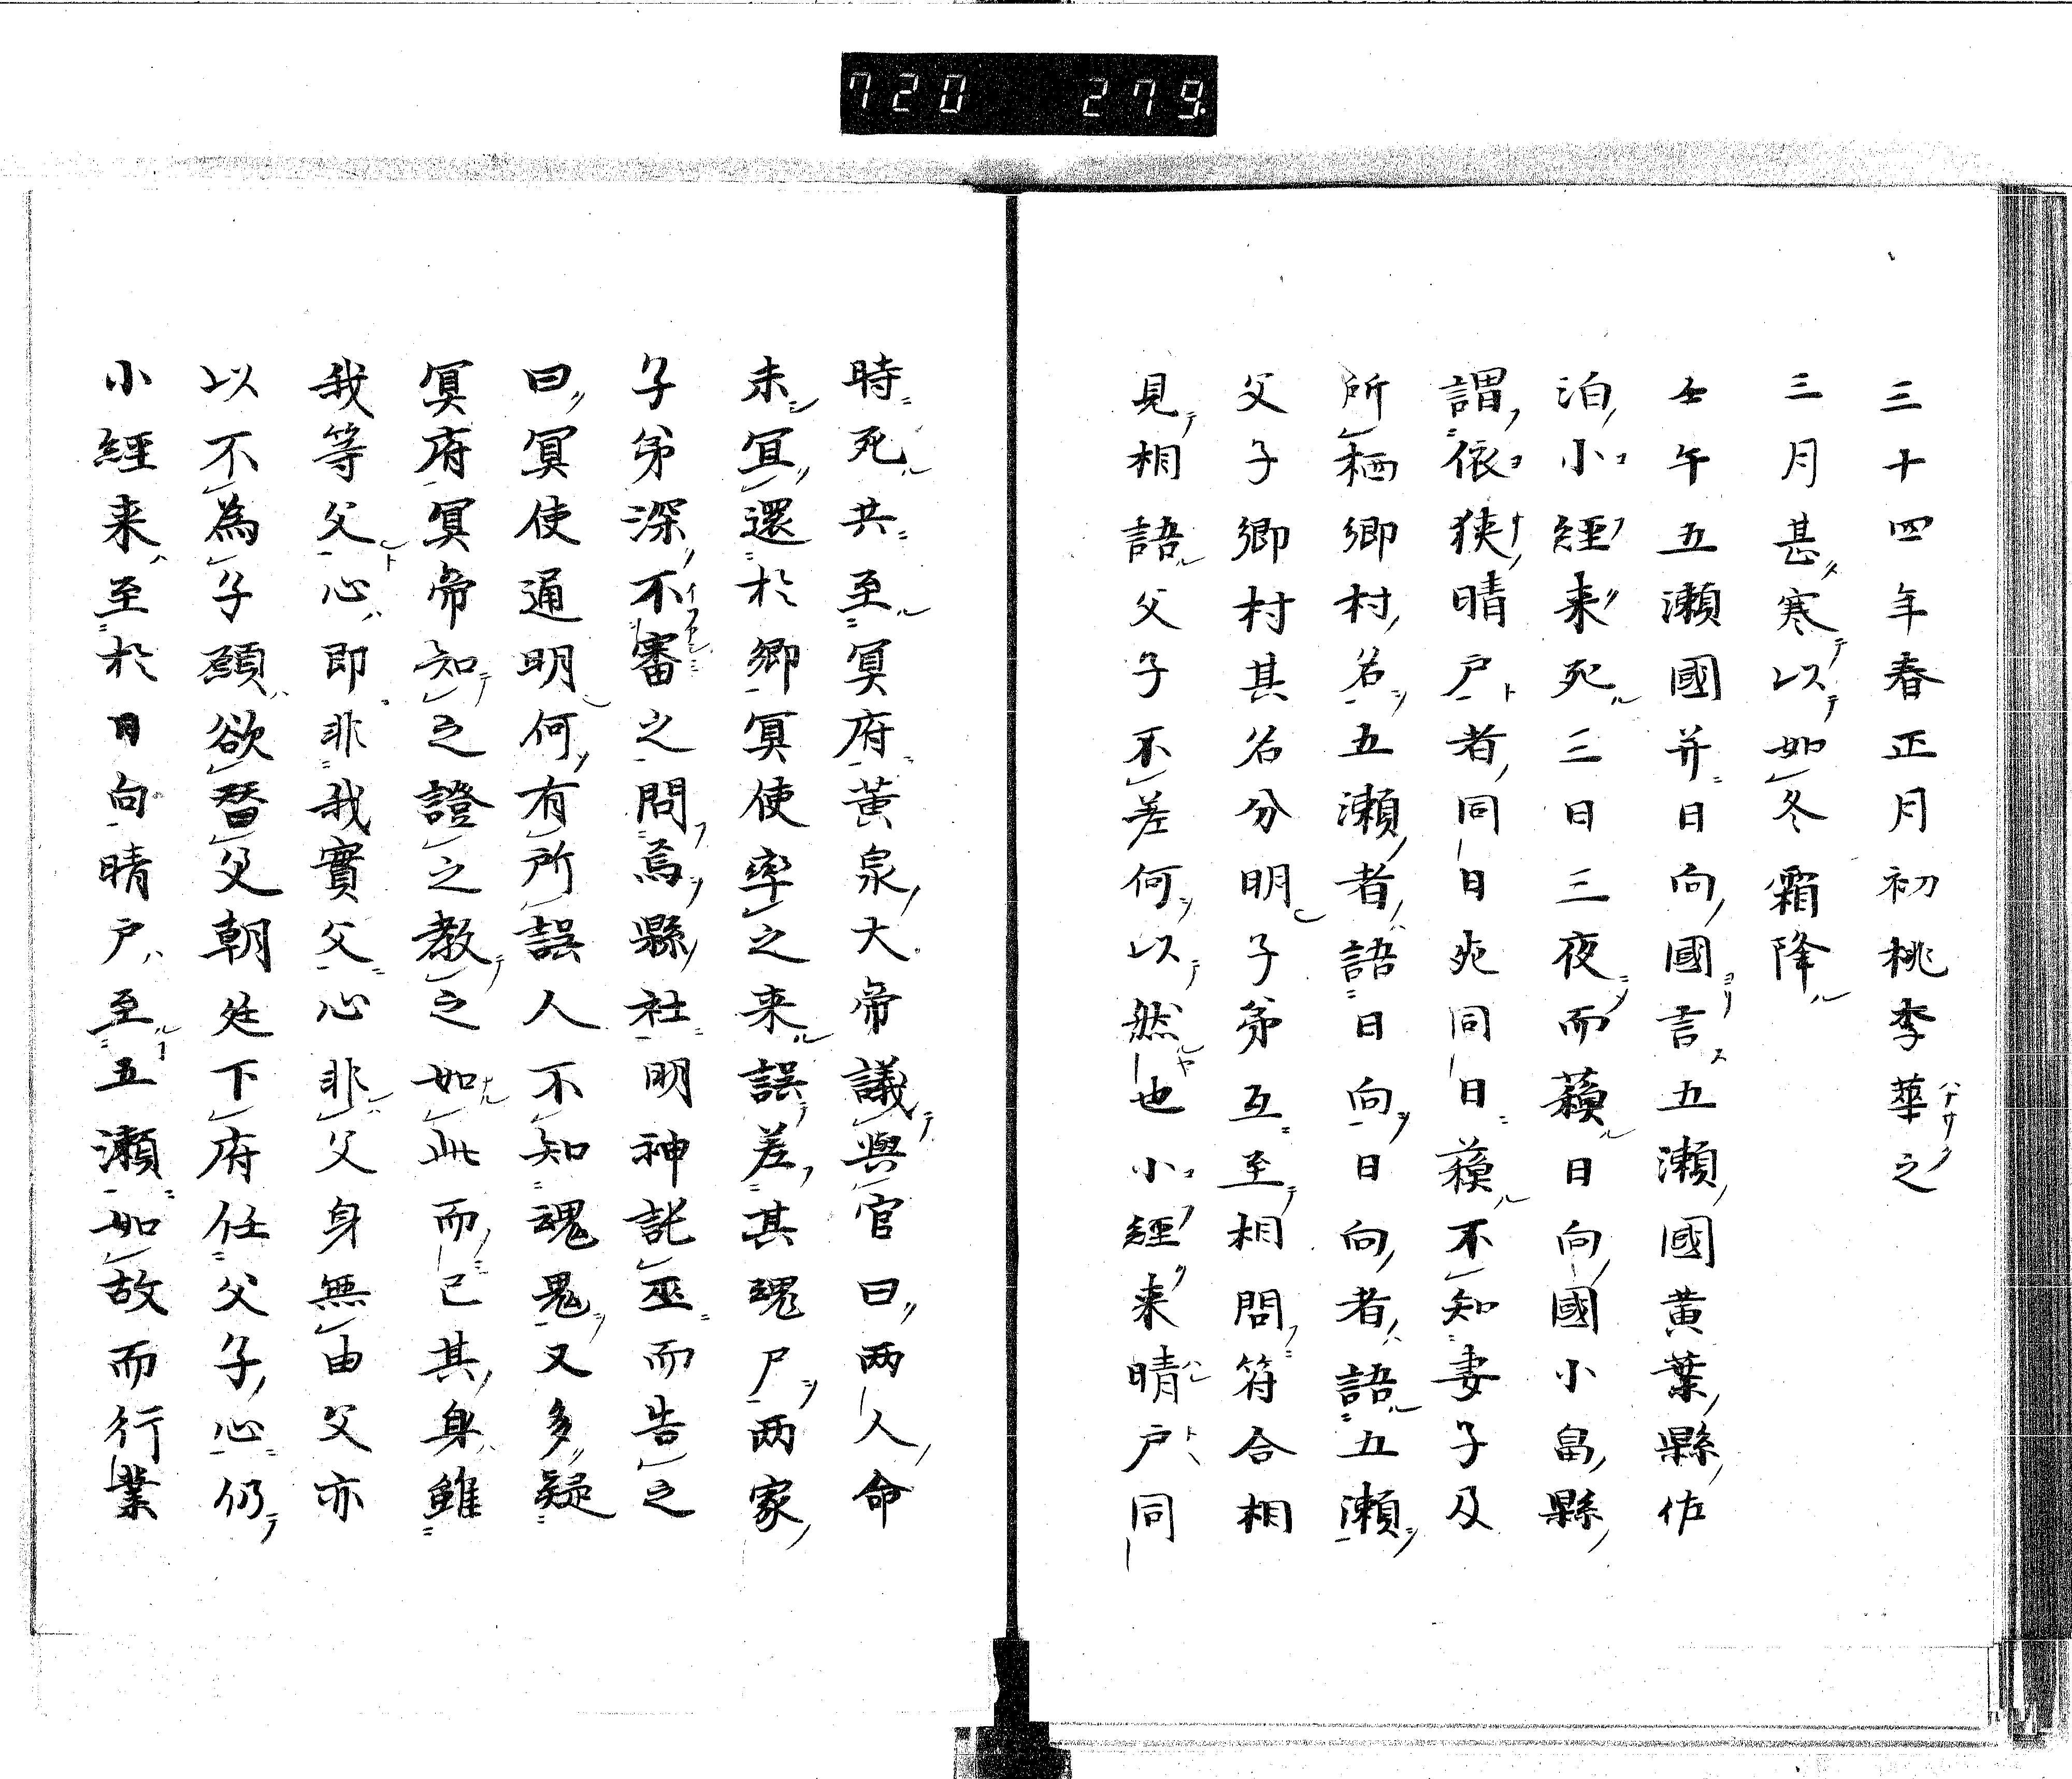 720 279
三十四年春正月初桃李華之
三月甚寒以如冬霜降
壬午五瀨國并日向國言五瀨國黄葉縣佐
泊小經来死三日三夜而蘓日向國小畠縣
謂依狹晴戸者同日死同日蘓不知妻子及
所栖郷村名五瀨者語日向日向者語五瀨
父子郷村其名分明子弟互至相問符合相
見相語父子不差何以然也小經来晴戸同
時死共至冥府黄泉大帝議與官曰两人命
未冝還於郷冥使率之来誤差其魂尸两家
子弟深不審之問焉縣社明神託巫而告之
曰冥使通明何有所誤人不知魂鬼又多疑
冥府冥帝知之證之教之如此而已其身雖
我等父心即非我實父心非父身無由父亦
以不為子顾欲替父朝廷下府任父子心仍
小經来至於日向晴戸至五瀨如故而行業